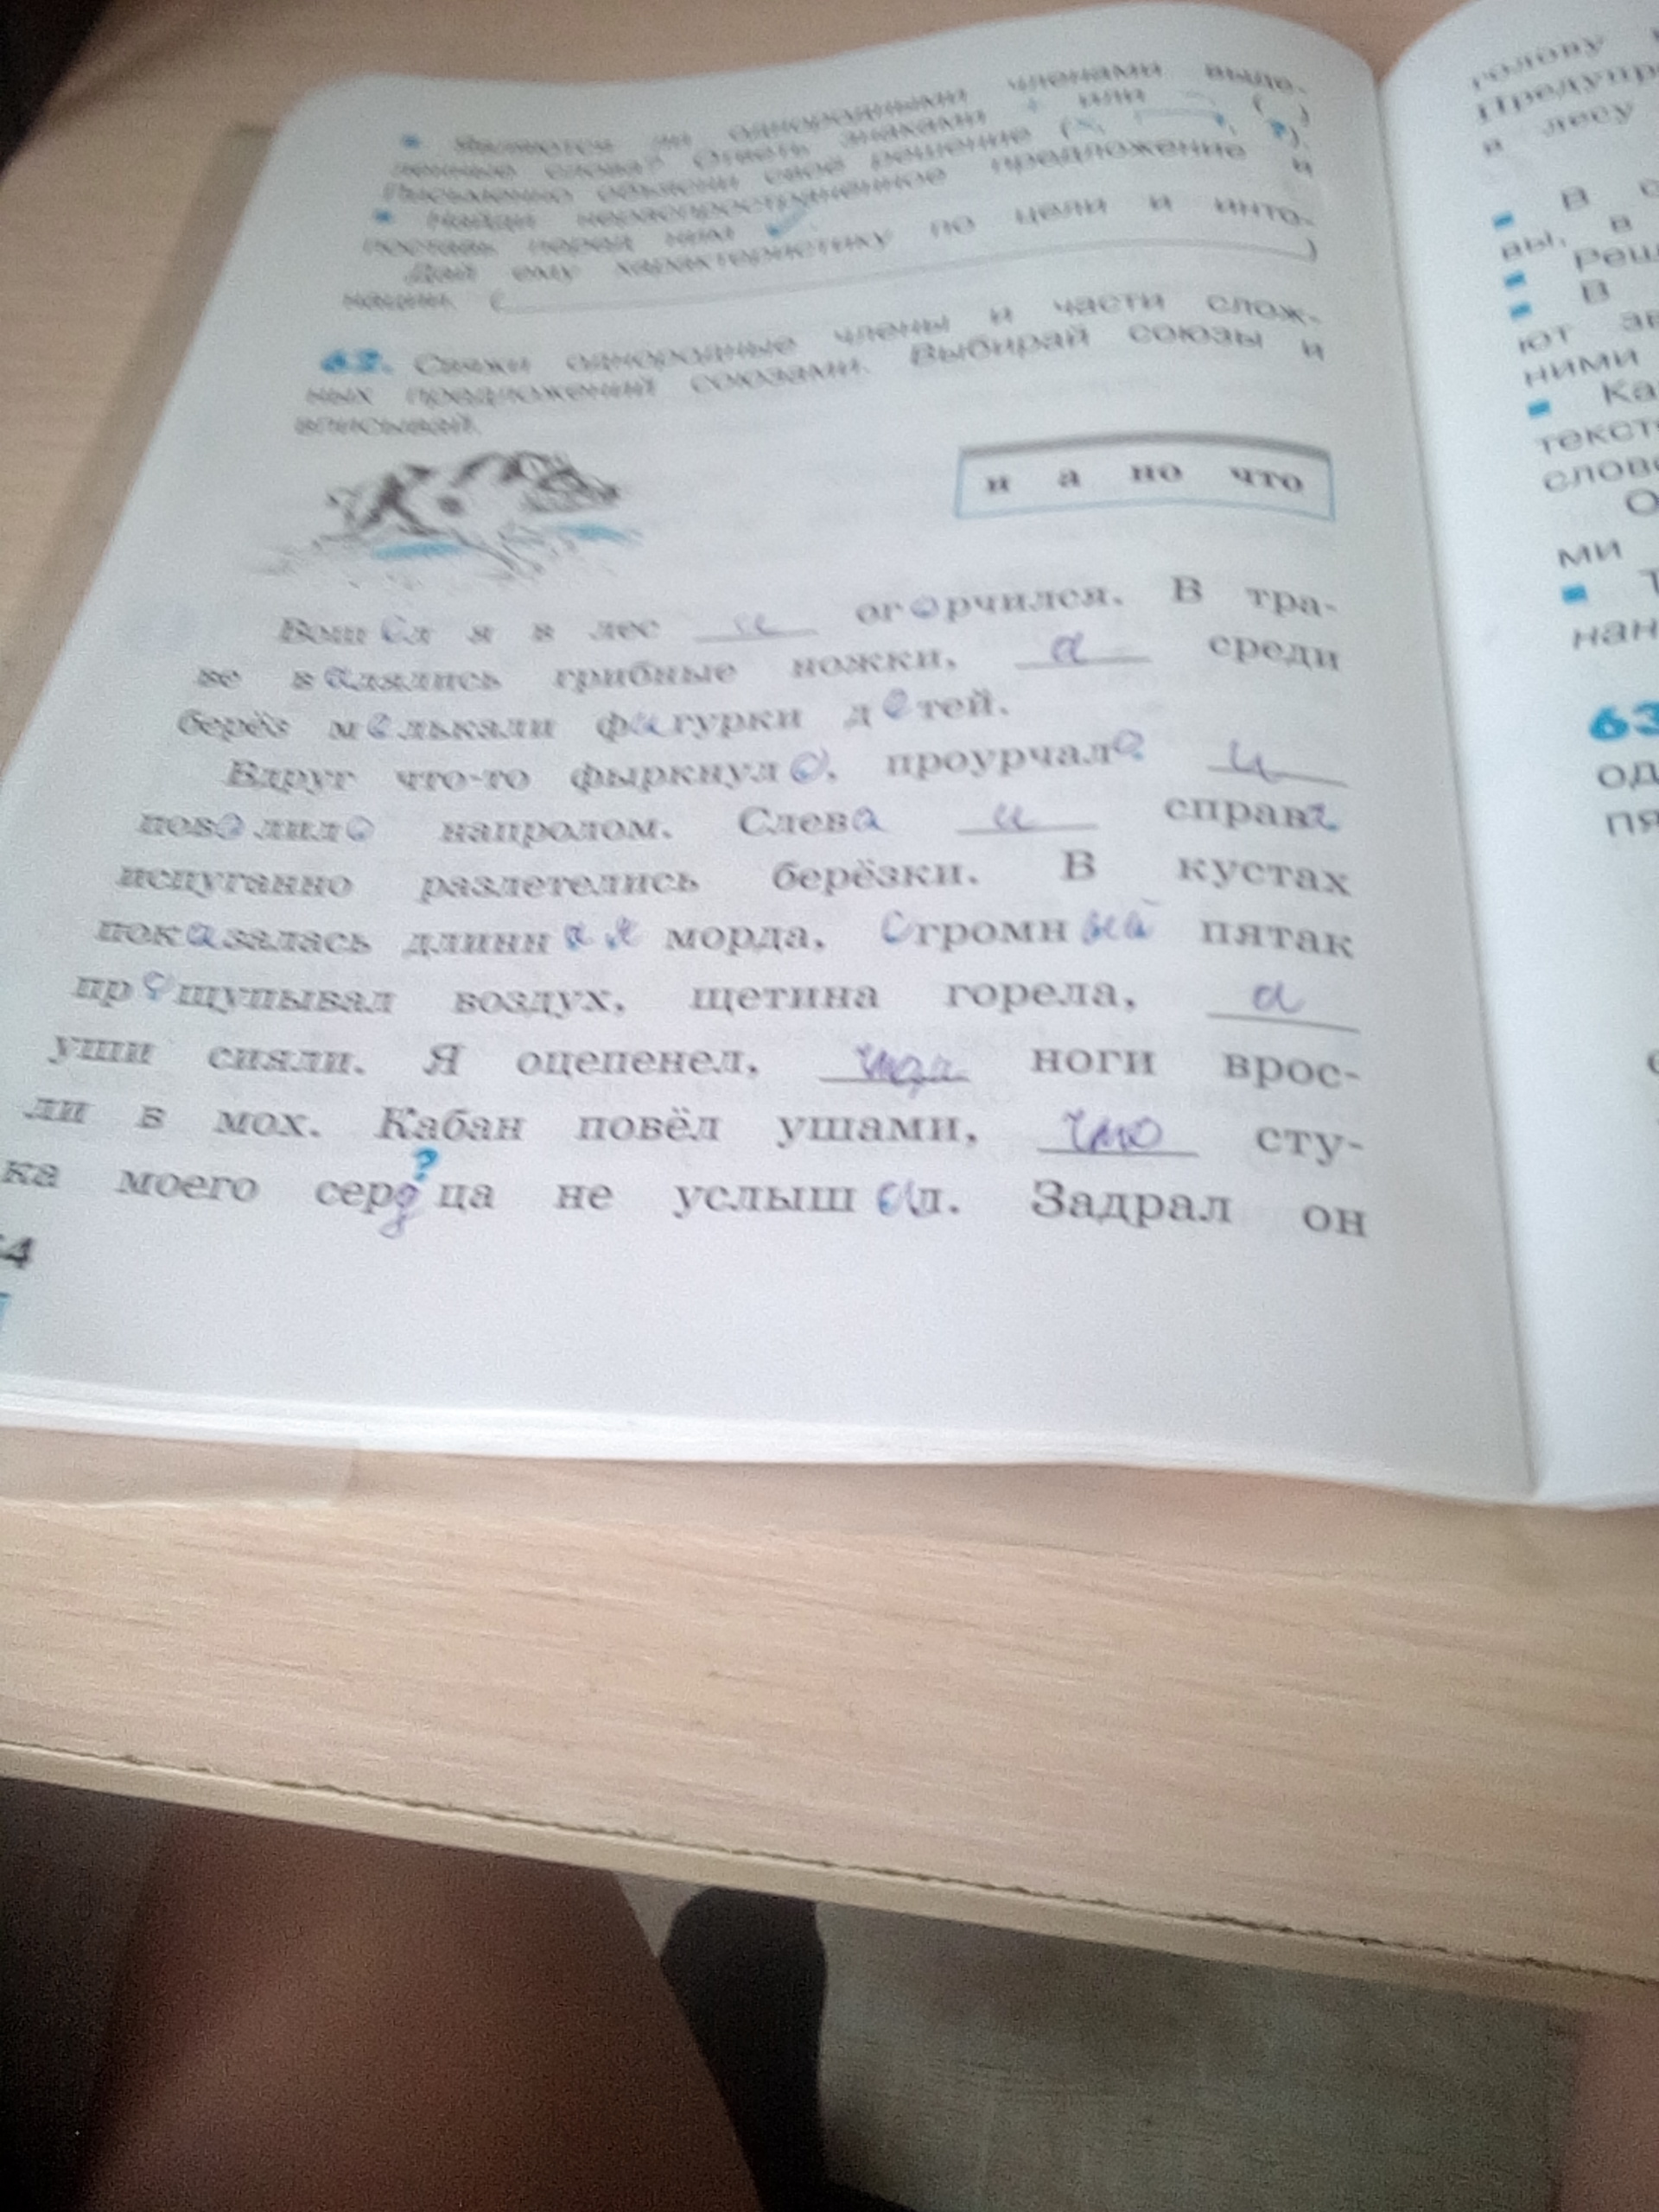 Является ли однородными членами выде-
ленные слова? Ответь знаками + или –. ( )
Письменно объясни свое решение (×, ?).
Найди нераспространенное предложение и
поставь перед ним
Дай ему характеристику по цели и инто-
нации. ( )
62. Свяжи однородные члены и части слож-
ных предложений союзами. Выбирай союзы и
вписывай.
и а но что
Вошёл я в лес и огорчился. В тра-
ве валялись грибные ножки, а среди
берёз мелькали фигурки детей.
Вдруг что-то фыркнуло, проурчало и
повалило напролом. Слева и справа
испуганно разлетелись берёзки. В кустах
показалась длинная морда. Огромный пятак
прощупывал воздух, щетина горела, а
уши сияли. Я оцепенел, ноги врос-
ли в мох. Кабан повёл ушами, что сту-
ка моего сердца не услышал. Задрал он
?
64
голову
Предупр
в лесу
В
вы, в
Реш
В
ют
ними
Ка
текст
слов
О
ми
Т
нан
63
од
пя